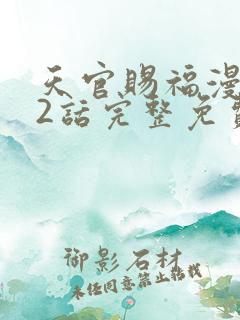 天官賜福漫
2話完整免費
御影石材
未经同意禁止转载